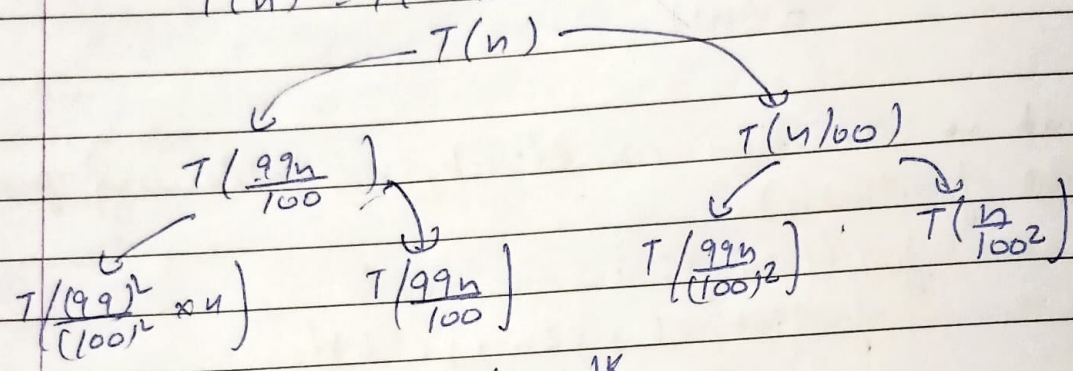 T(n)
T(99n/100) T(n/100)
T((99)²/(100)² × n) T(99n/100) T(99n/(100)²) T(n/100²)